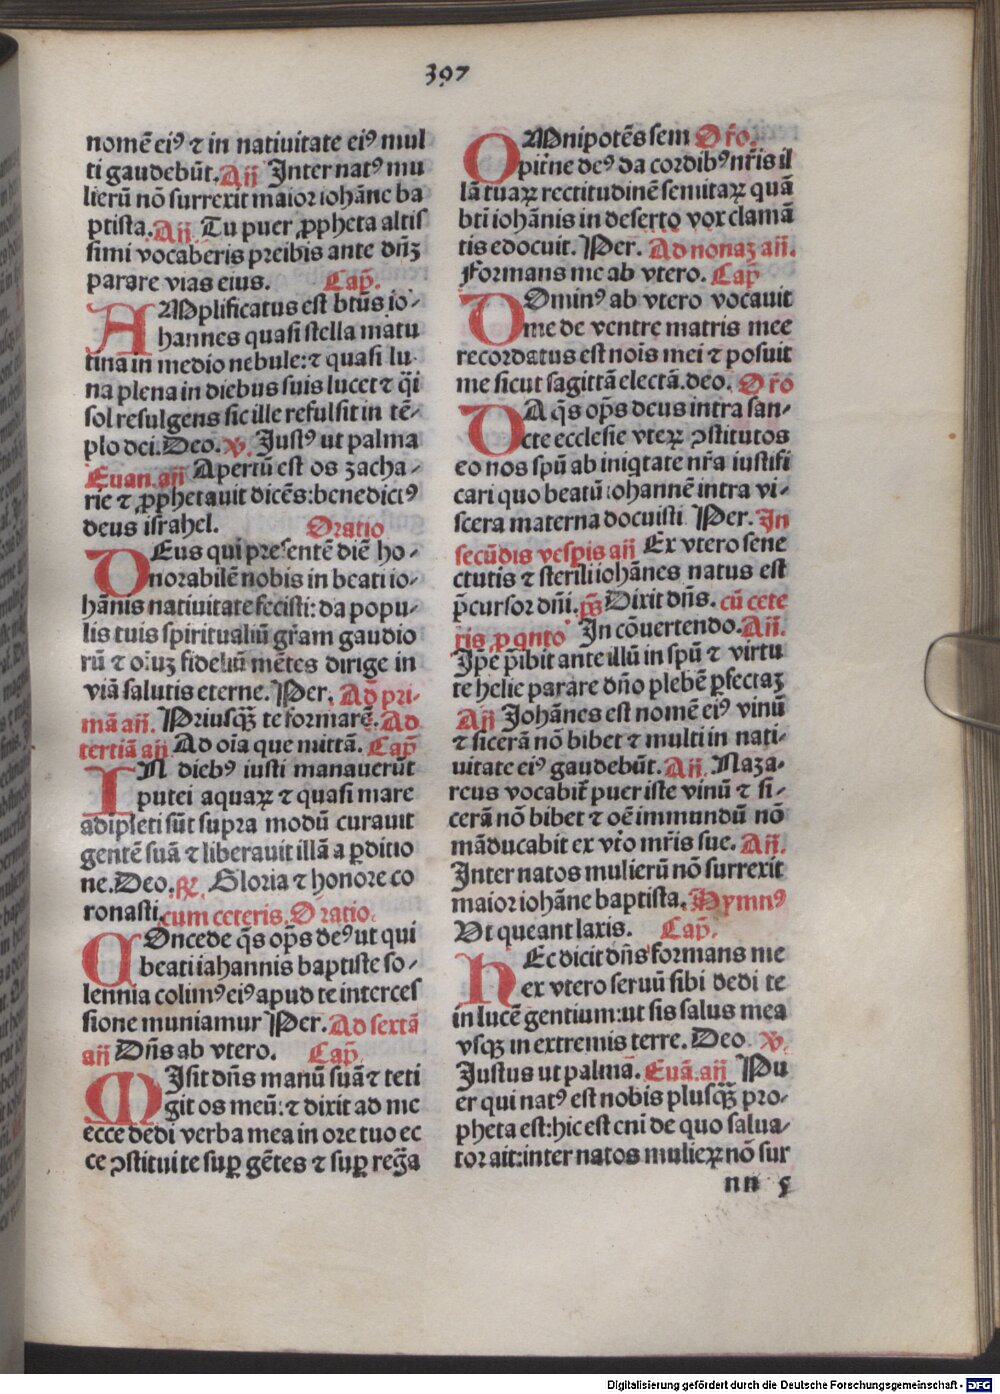 397
nomē eiꝰ ⁊ in natiuitate eiꝰ mul
ti gaudebūt. Añ Inter natꝰ mu
lierū nō surrexit maior iohāne ba
ptista. Añ. Tu puer ꝓpheta altis
simi vocaberis preibis ante dn̄ʒ
parare vias eius. Cap̄.
AMplificatus est btūs io⸗
hannes quasi stella matu
tina in medio nebule: ⁊ quasi lu⸗
na plena in diebus suis lucet ⁊ q̈i
sol refulgens sic ille refulsit in tē⸗
plo dei. Deo. ꝟ. Iustꝰ ut palma
Euan. añ Apertū est os zacha⸗
rie ⁊ ꝓphetauit dicēs: benedictꝰ
deus israhel. Oratio
DEus qui presentē diē ho⸗
norabilē nobis in beati io⸗
hānis natiuitate fecisti: da popu⸗
lis tuis spiritualiū gr̄am gaudio
rū ⁊ oīuʒ fideliū mētes dirige in
viā salutis eterne. Per. Ad pri⸗
mā añ. Priusqꝫ te formarē. Ad
tertiā añ Ad oīa que mittā. Cap̄
IN diebꝰ iusti manauerūt
putei aquaꝝ ⁊ quasi mare
adipleti sūt supra modū curauit
gentē suā ⁊ liberauit illā a ꝑditio
ne. Deo. ℟. Gloria ⁊ honore co
ronasti. cum ceteris. Oratio.
COncede q̄s op̄s deꝰ ut qui
beati iahannis baptiste so⸗
lennia colimꝰ eiꝰ apud te interces
sione muniamur Per. Ad sextā
añ Dn̄s ab vtero. Cap̄.
MIsit dn̄s manū suā ⁊ teti
git os meū: ⁊ dixit ad me
ecce dedi verba mea in ore tuo ec
ce ꝯstitui te suꝑ gētes ⁊ suꝑ reḡa
OMnipotēs sem Or̄o.
pit̄ne deꝰ da cordibꝰ nr̄is il
lā tuaꝝ rectitudinē semitaꝝ quā
btī iohānis in deserto vox clamā
tis edocuit. Per. Ad nonaʒ añ.
Formans me ab vtero. Cap̄
DOminꝰ ab vtero vocauit
me de ventre matris mee
recordatus est noīs mei ⁊ posuit
me sicut sagittā electā. deo. Or̄o
DA q̄s op̄s deus intra san⸗
cte ecclesie vteꝝ ꝯstitutos
eo nos sp̄u ab iniq̄tate nr̄a iustifi
cari quo beatū iohannē intra vi⸗
scera materna docuisti Per. In
secūdis vespis añ Ex vtero sene
ctutis ⁊ sterili iohānes natus est
p̄cursor dn̄i. ps̄ Dixit dn̄s. cū cete
ris ꝓ qnto In cōuertendo. Añ.
Ip̄e p̄ibit ante illū in sp̄u ⁊ virtu
te helie parare dn̄o plebē ꝑfectaʒ
Añ Iohānes est nomē eiꝰ vinū
⁊ sicerā nō bibet ⁊ multi in nati⸗
uitate eiꝰ gaudebūt. Añ. Naza⸗
reus vocabit̄ puer iste vinū ⁊ si⸗
cerā nō bibet ⁊ oē immundū nō
māducabit ex vt̄o mr̄is sue. Añ.
Inter natos mulierū nō surrexit
maior iohāne baptista. Hymnꝰ
Vt queant laxis. Cap̄.
HEc dicit dn̄s formans me
ex vtero seruū sibi dedi te
in lucē gentium: ut sis salus mea
vsqꝫ in extremis terre. Deo. ꝟ.
Iustus ut palmā. Euā. añ Pu
er qui natꝰ est nobis plusqꝫ pro⸗
pheta est: hic est eni de quo salua⸗
tor ait: inter natos mulieꝝ nō sur
nn
Digitalisierung gefördert durch die Deutsche Forschungsgemeinschaft - DFG